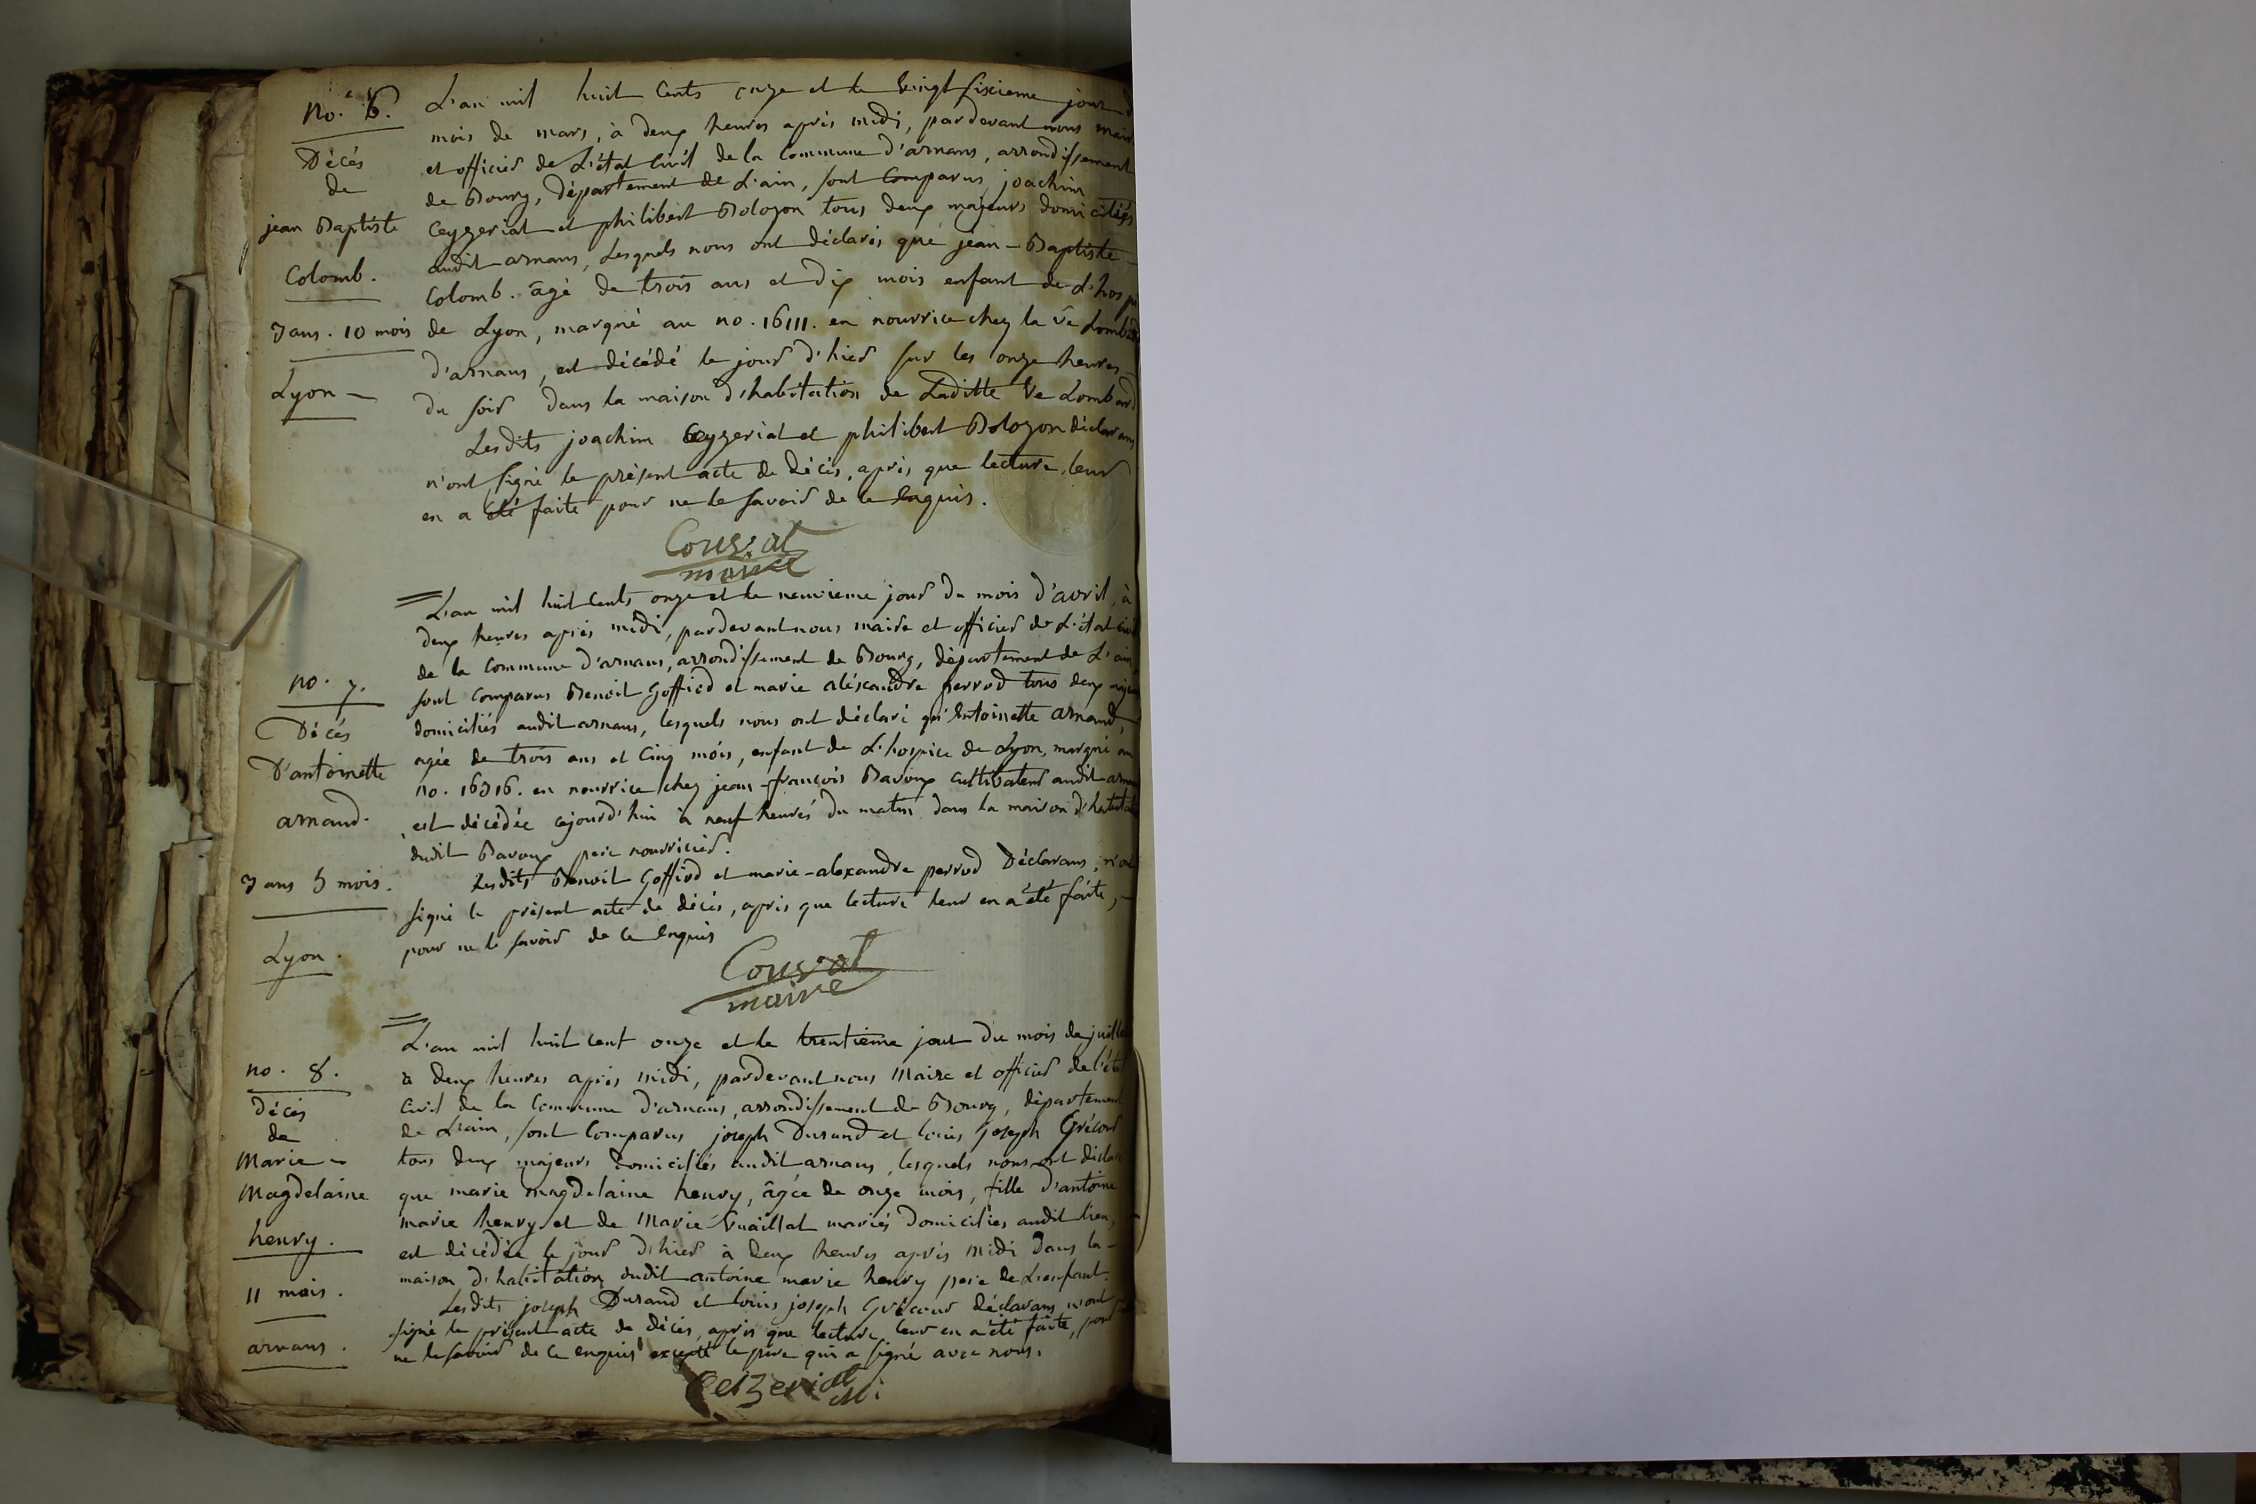 no. 6.
Décés
de
jean Baptiste
Colomb.
3 ans. 10 mois
Lyon —
L'an mil huit Cents onze et le vingt sixieme jour
mois de mars, à deux heures après midi, pardevant nous maire
et officier de L'état Civil de la Commune d'arnans, arrondissement
de Bourg, département de L'ain, sont Comparus joachim
Ceyzeriat et philibert Bolozon tous deux majeurs domiciliés
audit arnans, Lesquels nous ont déclarés que jean-Baptiste
Colomb. âgé de trois ans et dix mois enfant de L'hospi
de Lyon, marqué au no. 16111. en nourrice chez la ve Lombard
d'arnans, est décédé le jour d'hier sur les onze heures
du soir dans la maison d'habitation de Laditte Ve Lombard
Lesdits joachim Ceyzeriat et philibert Bolozon déclarans
n'ont signé le présent acte de décès, après que lecture leur
en a été faite pour ne le savoir de ce enquis.
Couvat
maire
no. 7.
Décés
D'antoinette
arnaud.
3 ans 5 mois.
Lyon.
L'an mil huit Cents onze et le neuvieme jour du mois d'avril, à
deux heures après midi, pardevant nous maire et officier de L'état civil
de la Commune d'arnans, arrondissement de Bourg, département de L'ain
sont Comparus Benoit Goffied et marie aléxandre perrod tous deux majeurs
domiciliés audit arnans, lesquels nous ont déclaré qu'Antoinette arnaud,
agée de trois ans et Cinq mois, enfant de L'hospice de Lyon, marqué au
no. 16316. en nourrice chez jean-françois Bavoux Cultivateur audit arnans
est décédée cejourd'hui à neuf heures du matin dans la maison d'habitation
dudit Bavoux pere nourricier.
Lesdits Benoit Goffied et marie-alexandre perrod Déclarans, n'ont
signé le présent acte de décès, après que lecture leur en a été faite,
pour ne le savoir de ce Enquis
Couvat
maire
no. 8.
Décès
de
Marie —
Magdelaine
henry.
11 mois.
arnans.
L'an mil huit cent onze et le trentième jour du mois de juillet
à deux heures après midi, pardevant nous Maire et officier de l'état
Civil de la Commune d'arnans, arrondissement de Bourg, département
de L'ain, sont Comparus joseph Durand et louis joseph Grécour
tous deux majeurs domiciliés audit arnans, lesquels nous ont déclaré
que marie magdelaine henry, âgée de onze mois, fille d'antoine
marie henry et de Marie Vuaillat mariés domiciliés audit lieu,
est décédée le jour d'hier à deux heures après Midi dans la
maison d'habitation dudit antoine marie henry pere de L'enfant.
Lesdits joseph Durand et louis joseph Grécour déclarans, n'ont
signé le présent acte de décès, après que lecture leur en a été faite, pour
ne le savoir de ce enquis excepté le pere qui a signé avec nous.
Ceizeriat